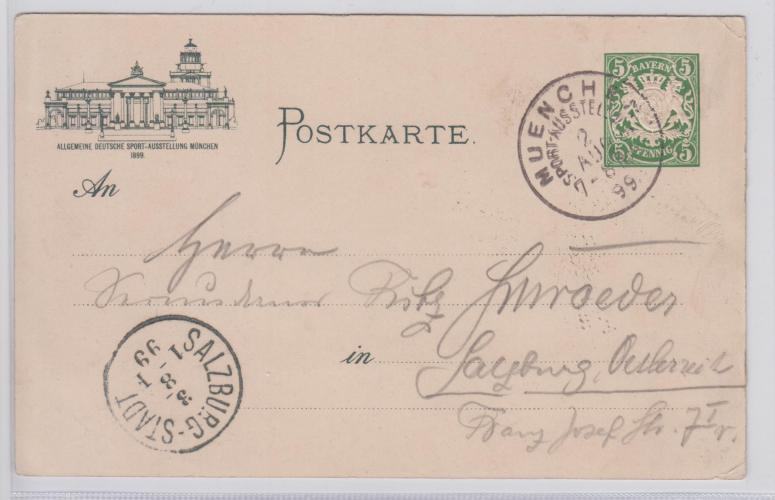 ALLGEMEINE DEUTSCHE SPORT-AUSSTELLUNG MÜNCHEN
1899.
POSTKARTE.
5 BAYERN 5
5 PFENNIG 5
MUENCHEN
SPORT-AUSSTELL
2.
AUG
7-8
99.
An
Herrn
Fritz Schroeder
in
Salzburg, Oesterreich
Franz Josef Str. 7 I r.
SALZBURG-STADT
3 8 99